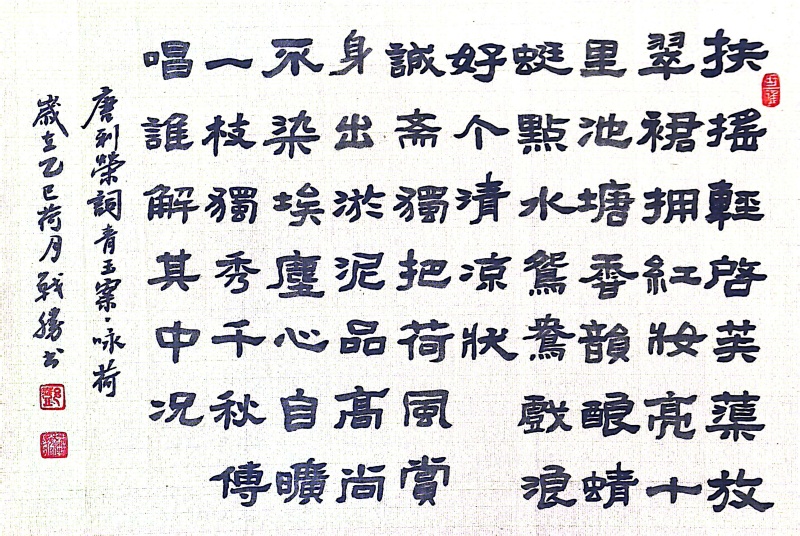 扶搖輕啓芙蕖放
翠裙拥紅妝亮十
里池塘香韻釀蜻
蜓點水鴛鴦戲浪
好个清凉狀
誠斋獨把荷風賞
身出淤泥品高尚
不染埃塵心自曠
一枝獨秀千秋傳
唱誰解其中况
唐利榮詞青玉案·咏荷
歲在乙巳荷月戰勝书